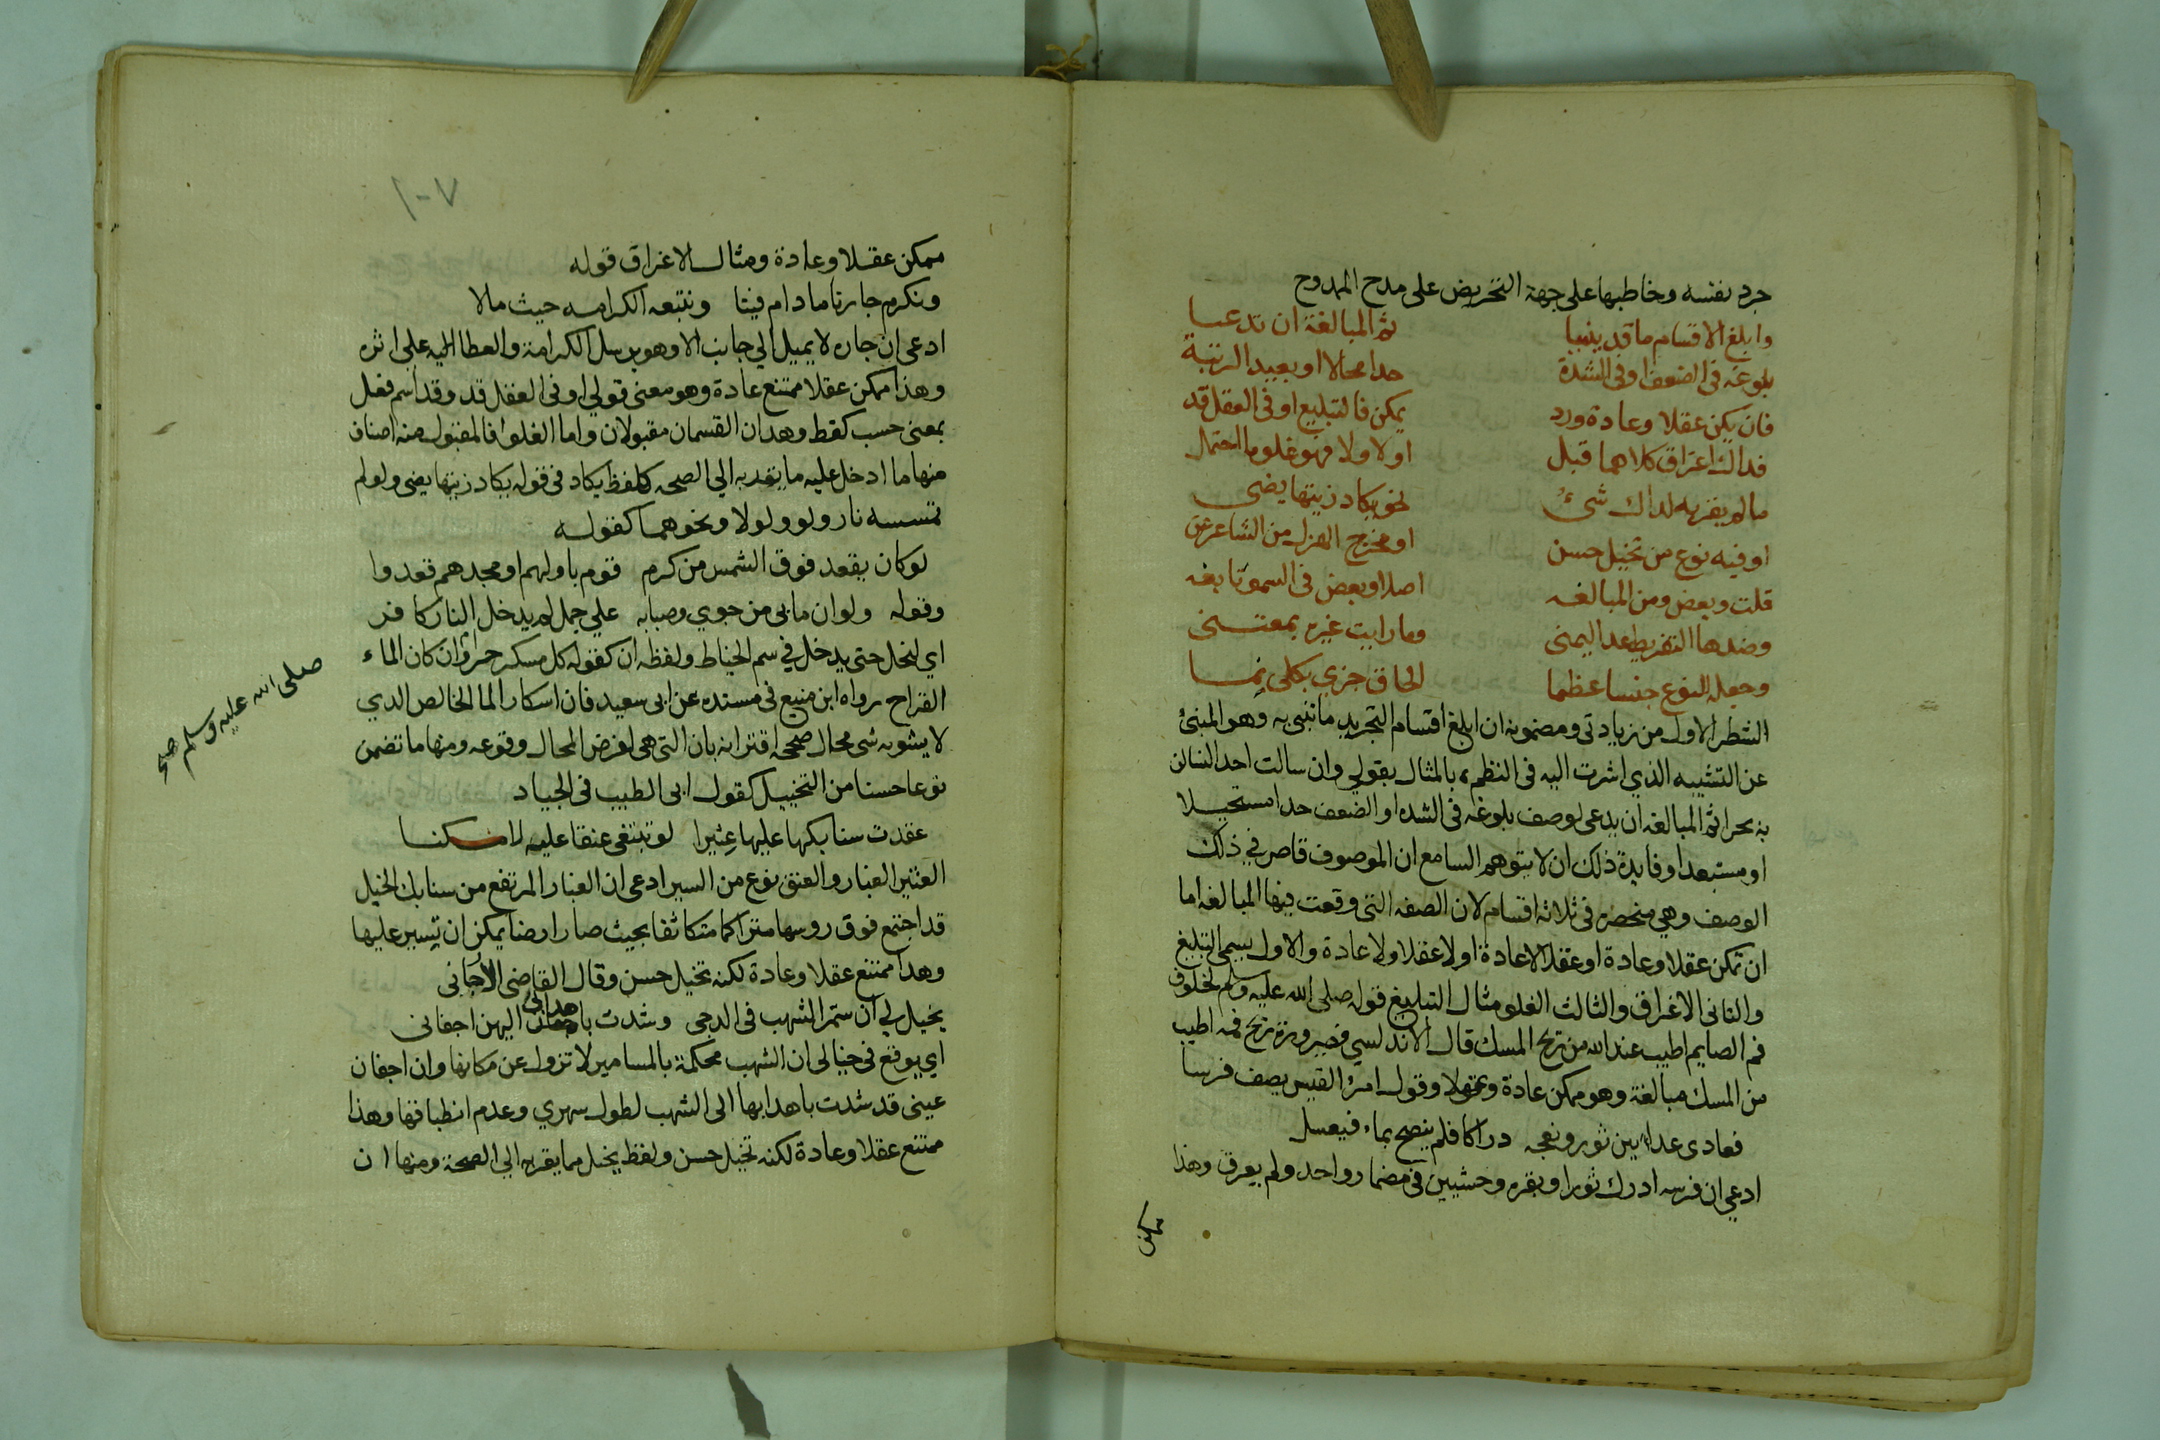 جرد نفسه وخاطبها على جهة التحريض على مدح الممدوح
وابلغ الاقسام ما قد ينبنا ثم المبالغة ان تدعــا
بلوغه فى الضعف او فى الشدة حدا محالا او بعيد الرتبة
فان يكن عقلا وعادة ورد يمكن فالتبليغ او فى العقل قد
فداك اغراق كلاهما قبل اولا ولا فهو غلو ما احتمل
ما لم يقربه لداك شىء نحو يكاد زيتها يضى
او فيه نوع من تخييل حسن او مخرج الهزل من الشاعر عن
قلت وبعض ومن المبالغه اصلا وبعض فى السمو تابغه
وضدها التفريط عد اليمنى وما رايت غيره بمعتــنى
وجعله النوع جنسا عظما الحاق جزي بكلى نمــا
الشطر الاول من زيادتى ومضمونه ان ابلغ اقسام التجريد ما تنبى به وهو المبنى
عن التشبيه الذي اشرت اليه فى النظم بالمثال بقولي وان سالت احد النسالن
به بحرا ثم المبالغه ان يدعى لوصف بلوغه فى الشده او الضعف حدا مستحيلا
او مستبعدا وفايدة ذلك ان لا يتوهم السامع ان الموصوف قاصر في ذلك
الوصف وهي منحصره فى ثلاثه اقسام لان الصفه التى وقعت فيها المبالغه اما
ان تمكن عقلا وعادة او عقلا لا عادة او لا عقلا ولا عادة والاول يسمى التبليغ
والثانى الاغراق والثالث الغلو مثال التبليغ قوله صلى الله عليه وسلم لخلوف
فم الصايم اطيب عند الله من ريح المسك قال الاندلسي فصيرورة ريح فمه اطيب
من المسك مبالغة وهو ممكن عادة وعقلا وقول امرؤ القيس يصف فرسا
فعادى عداء بين ثور ونعجه دراكا فلم ينضح بماء فيغسل
ادعي ان فرسه ادرك ثورا وبقره وحشيين فى مضمار واحد ولم يعرق وهذا
ممكن
٧٠١
ممكن عقلا وعادة ومثال الاغراق قوله
ونكرم جارنا ما دام فينا ونتبعه الكرامه حيث مالا
ادعى ان جاره لا يميل الي جانب الا وهو يرسل الكرامة والعطا اليه على اثره
وهذا ممكن عقلا ممتنع عادة وهو معنى قولي او فى العقل قد وقد اسم فعل
بمعنى حسب كقط وهدان القسمان مقبولان واما الغلو فالمقبول منه اصناف
منها ما ادخل عليه ما يقربه الي الصحه كلفظ يكاد فى قوله يكاد زيتها يضى ولو لم
تمسسه نار ولو ولولا ونحوهما كقولـه
لو كان يقعد فوق الشمس من كرم قوم باولهم او مجدهم قعدوا
وقوله ولو ان ما بى من جوي وصبابه علي جمل لم يدخل النار كافر
اي لنحل حتى يدخل في سم الخياط ولفظه ان كقوله كل مسكر حرام وان كان الماء
صلى الله عليه وسلم صح
القراح رواه ابن منيع فى مسنده عن ابى سعيد فان اسكار الما الخالص الدي
لا يشوبه شى محال صححه اقترانه بان التى هى لفرض المحال وقوعه ومنها ما تضمن
نوعا حسنا من التخييل كقول ابى الطيب فى الجياد
عقدت سنابكها عليها عثيرا لو تبتغى عنقا عليه لامــكنــا
العثير الغبار والعنق نوع من السير ادعى ان الغبار المرتفع من سنابك الخيل
قد اجتمع فوق روسها متراكما متكاثفا بحيث صار ارضا يمكن ان تسير عليها
وهدا ممتنع عقلا وعادة لكنه تخيل حسن وقال القاضى الارجانى
يخيل لي ان سمر الشهب فى الدجى وشدت باهدابى اليهن اجفانى
اي يوقع فى خيالى ان الشهب محكمة بالمسامير لا تزول عن مكانها وان اجفان
عينى قد شدت باهدابها الى الشهب لطول سهري وعدم انطباقها وهذا
ممتنع عقلا وعادة لكنه تخيل حسن ولفظ يخيل مما يقربه الي الصحة ومنها ان